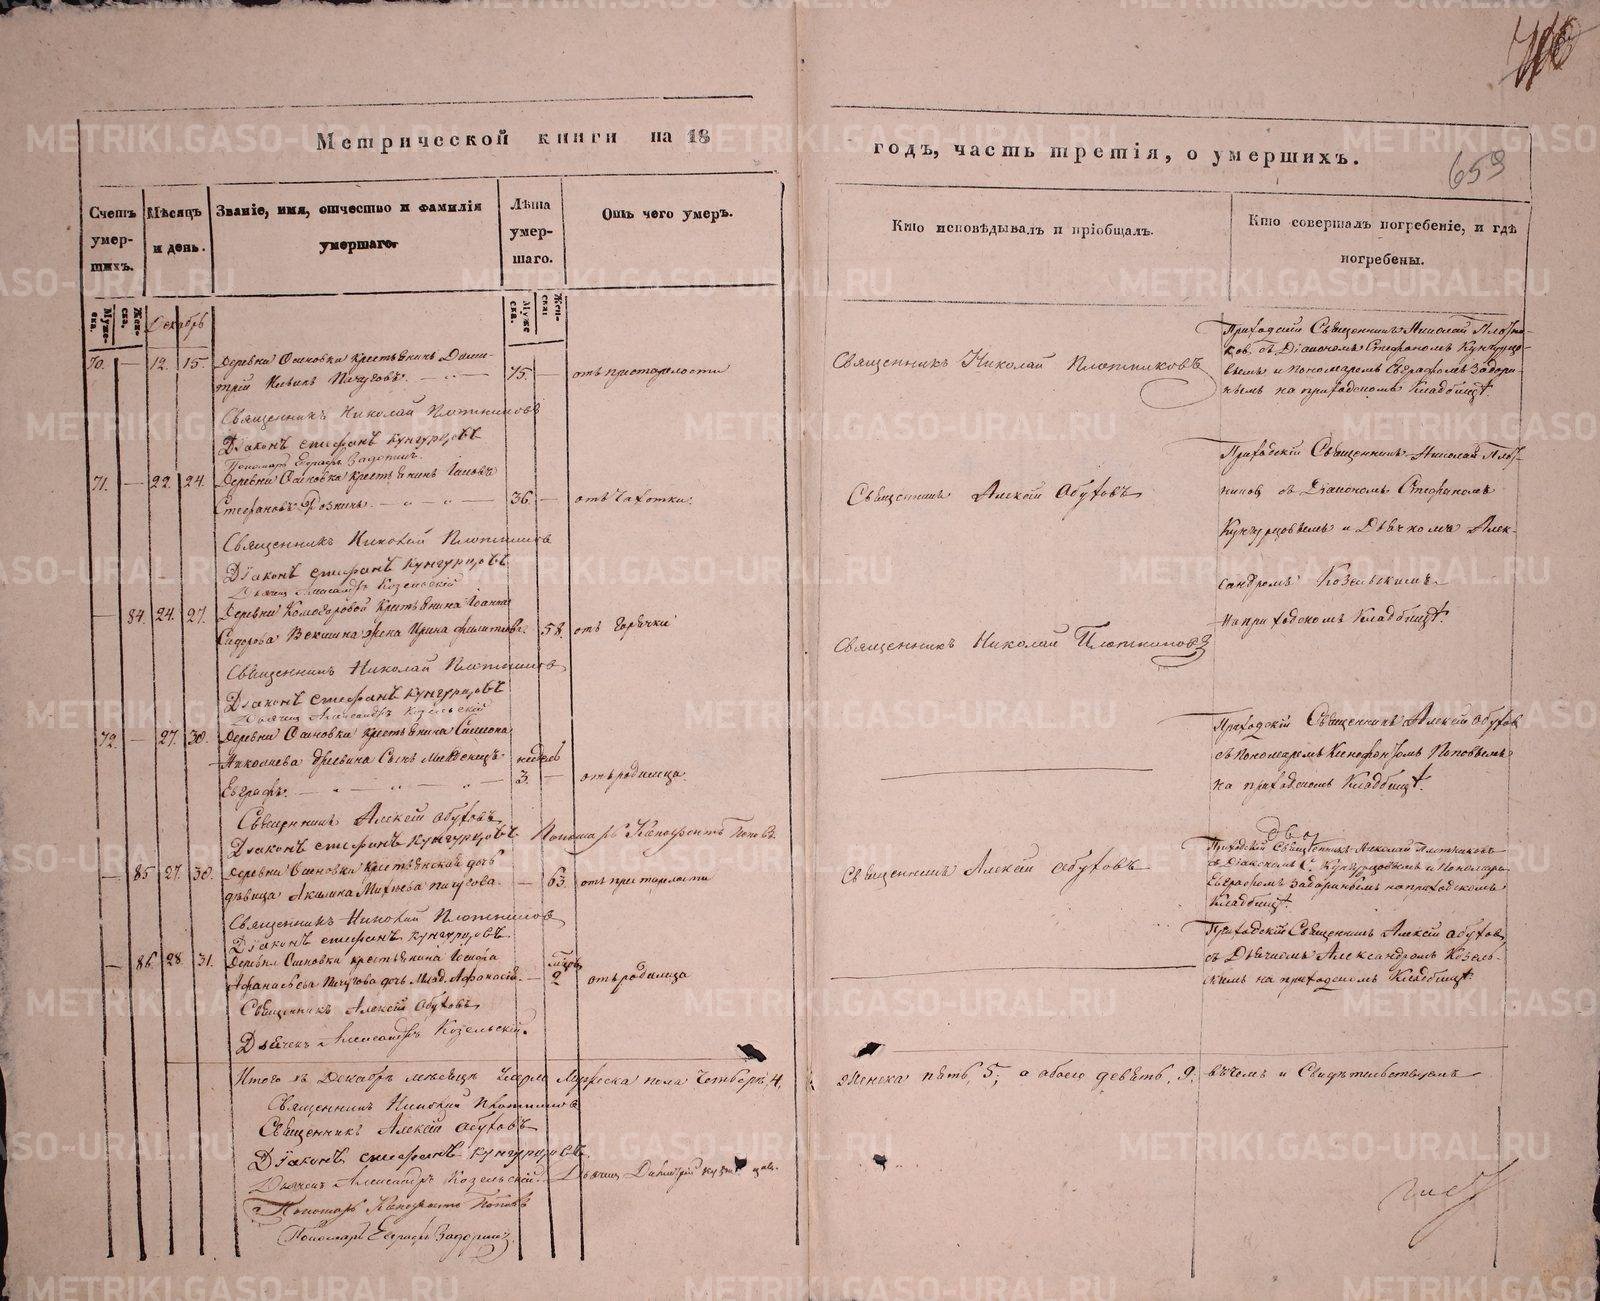 659
Метрической книги на 18
годъ, часть третія, о умершихъ.
Счетъ умер-
шихъ.
Мѣсяцъ
и день.
Званіе, имя, отчество и фамилія
умершаго.
Лѣта
умер-
шаго.
Отъ чего умеръ.
Кто исповѣдывалъ и пріобщалъ.
Кто совершалъ погребеніе, и гдѣ
погребены.
Муже-
ска.
Жен-
ска.
Декабрь
Муже
ска.
Жен-
ска.
70. — 12. 15. Деревни Осиновки крестьянинъ Дими-
трій Пичуговъ. 75. — отъ престарелости
Священникъ Николай Плотниковъ
Приходскій Священникъ Николай Плотни-
ковъ съ Діакономъ Стефаномъ Кунгурцо-
вымъ и пономаремъ Евграфомъ Задори-
нымъ на приходскомъ Кладбищѣ.
Священникъ Николай Плотниковъ
Діаконъ Стефанъ Кунгурцовъ
Пономарь Евграфъ Задоринъ.
71. — 22. 24. Деревни Осиновки крестьянинъ Іаковъ
Стефановъ 36. — отъ чахотки.
Священникъ Алексій Обуховъ
Приходскій Священникъ Николай Плот-
никовъ съ Діакономъ Стефаномъ
Кунгурцовымъ и Дьячкомъ Алек-
сандромъ Козельскимъ
на приходскомъ Кладбищѣ.
Священникъ Николай Плотниковъ
Діаконъ Стефанъ Кунгурцовъ
Дьячекъ Александръ Козельскій
— 84. 24. 27. Деревни Комаровой Крестьянина Іоанна
Сидорова Векшина жена Ирина Филиппова. 58. отъ горячки
Священникъ Николай Плотниковъ
Священникъ Николай Плотниковъ
Діаконъ Стефанъ Кунгурцовъ
Дьячекъ Александръ Козельскій
72. — 27. 30. Деревни Осиновки крестьянина Симеона
Николаева сынъ Младенецъ недель
Евграфъ. 3. — отъ родимца.
Приходскій Священникъ Алексій Обуховъ
съ Пономаремъ Ксенофонтомъ Поповымъ
на приходскомъ Кладбищѣ.
Священникъ Алексій Обуховъ
Діаконъ Стефанъ Кунгурцовъ Пономарь Ксенофонтъ Поповъ
— 85. 27. 30. Деревни Осиновки крестьянская дочь
дѣвица Акилина Пичугова. — 63. отъ престарелости
Священникъ Алексій Обуховъ
Приходскій Священникъ Николай Плотниковъ
съ Діакономъ С. Кунгурцовымъ и Пономаремъ
Евграфомъ Задоринымъ на приходскомъ
Кладбищѣ.
Священникъ Николай Плотниковъ
Діаконъ Стефанъ Кунгурцовъ
— 86. 28. 31. Деревни Осиновки крестьянина Іосифа
Афанасьева Пичугова дочь Млад. — 2 отъ родимца
Приходскій Священникъ Алексій Обуховъ,
съ Дьячкомъ Александромъ Козель-
скимъ на приходскомъ Кладбищѣ.
Священникъ Алексій Обуховъ
Дьячекъ Александръ Козельскій.
Итого въ Декабрѣ мѣсяцѣ умерло Мужеска пола Четверо, 4. Женска пять, 5; а обоего девять, 9. въ чемъ и Свидѣтельствуемъ
Священникъ Николай Плотниковъ
Священникъ Алексій Обуховъ
Діаконъ Стефанъ Кунгурцовъ
Дьячекъ Александръ Козельскій. Дьячекъ Димитрій
Пономарь Ксенофонтъ Поповъ
Пономарь Евграфъ Задоринъ
METRIKI.GASO-URAL.RU